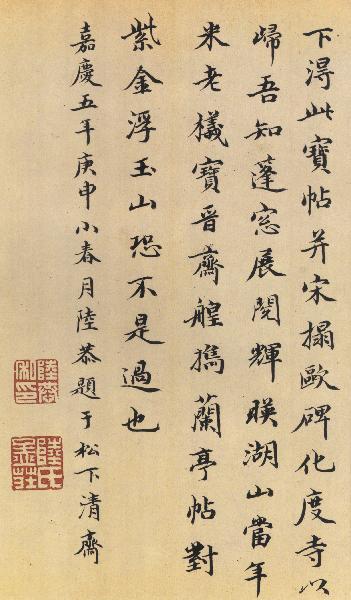 下淂此寶帖并宋搨歐碑化度寺以
歸吾知蓬窓展閱輝暎湖山當年
米老檥寶晉齋艎㩦蘭亭帖對
紫金浮玉山恐不是過也
嘉慶五年庚申小春月陸恭題于松下清齋
陸恭私印